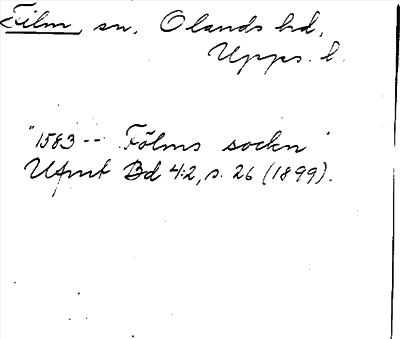 Film, sn, Olands hd,
Upps. l.
"1583 -- Fölms sockn"
Ufmt Bd 4:2, s. 26 (1899).